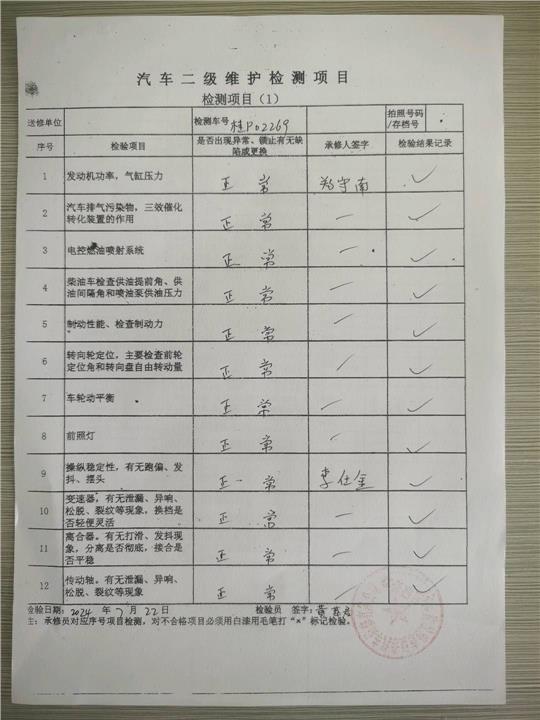 汽车二级维护检测项目
检测项目（1）
送修单位 检测车号 桂P02269 拍照号码/存档号
序号 检验项目 是否出现异常、锁止有无缺陷或更换 承修人签字 检验结果记录
1 发动机功率，气缸压力 正常 郑宇南 ✓
2 汽车排气污染物，三效催化转化装置的作用 正常 一 ✓
3 电控燃油喷射系统 正常 一 ✓
4 柴油车检查供油提前角、供油间隔角和喷油泵供油压力 正常 一 ✓
5 制动性能、检查制动力 正常 一 ✓
6 转向轮定位，主要检查前轮定位角和转向盘自由转动量 正常 一 ✓
7 车轮动平衡 正常 一 ✓
8 前照灯 正常 一 ✓
9 操纵稳定性，有无跑偏、发抖、摆头 正常 李仕金 ✓
10 变速器，有无泄漏、异响、松脱、裂纹等现象，换档是否轻便灵活 正常 一 ✓
11 离合器。有无打滑、发抖现象，分离是否彻底，接合是否平稳 正常 一 ✓
12 传动轴。有无泄漏、异响、松脱、裂纹等现象 正常 一 ✓
检验日期：2024年7月22日 检验员 签字：黄
主：承修员对应序号项目检测，对不合格项目必须用白漆用毛笔打“×”标记检验。